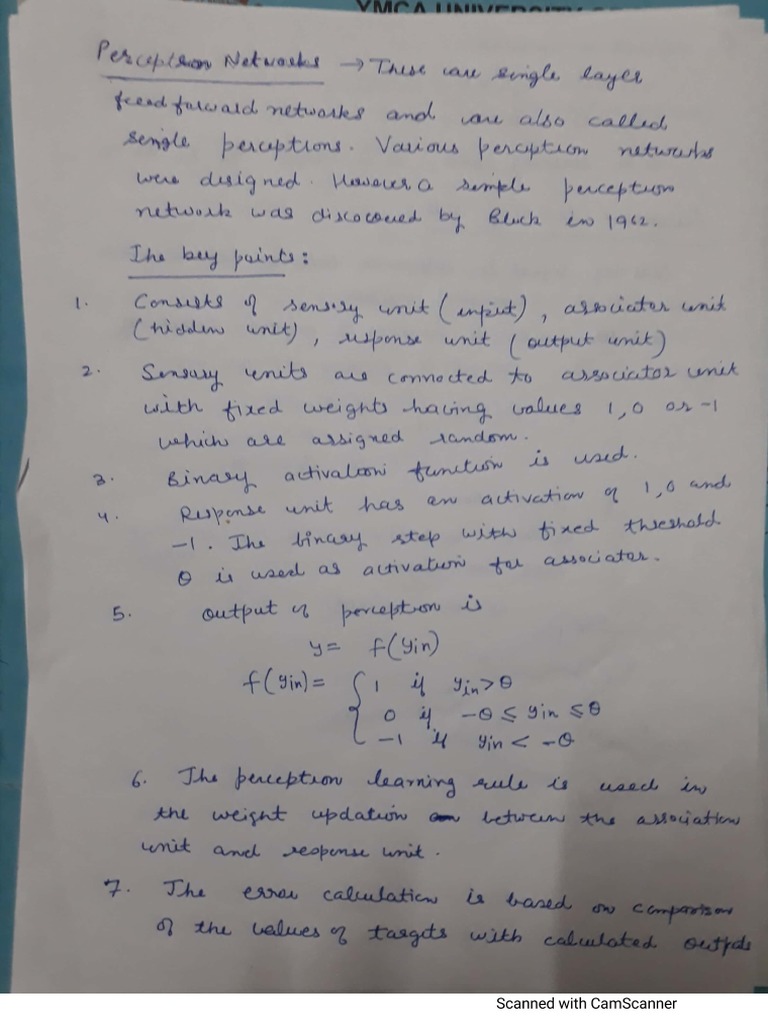 YMCA UNIVERSITY
Perceptron Networks → These are single layer
feed forward networks and are also called
single perceptions. Various perception networks
were designed. However a simple perception
network was discovered by Block in 1962.
The key points:
1. Consists of sensory unit (input), associator unit
(hidden unit), response unit (output unit)
2. Sensory units are connected to associator unit
with fixed weights having values 1, 0 or -1
which are assigned random.
3. Binary activation function is used.
4. Response unit has an activation of 1, 0 and
-1. The binary step with fixed threshold
θ is used as activation for associator.
5. output of perception is
y = f(yin)
f(yin) = { 1 if yin > θ
0 if -θ ≤ yin ≤ θ
-1 if yin < -θ
6. The perception learning rule is used in
the weight updation between the association
unit and response unit.
7. The error calculation is based on comparison
of the values of targets with calculated outputs
Scanned with CamScanner